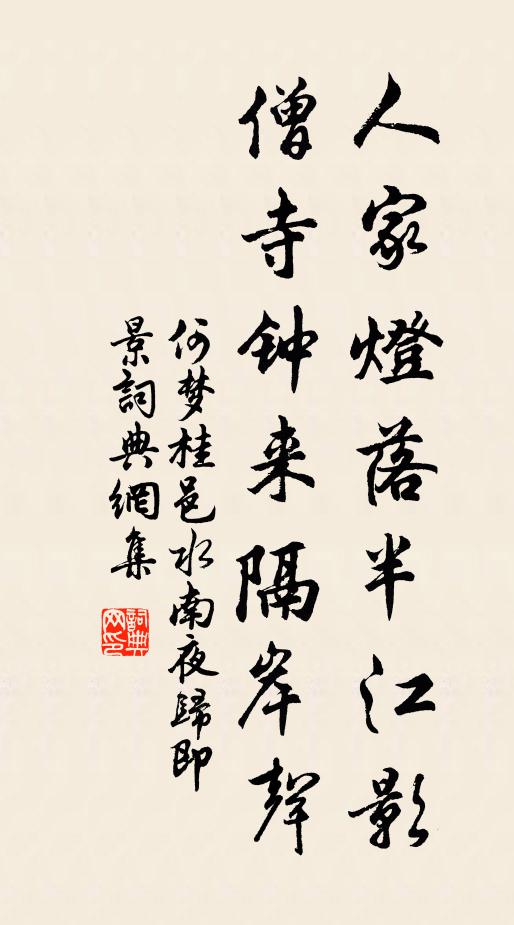 人家燈落半江影
僧寺钟来隔岸聲
何梦桂邑水南夜歸即
景詞典網集
詞典
网印